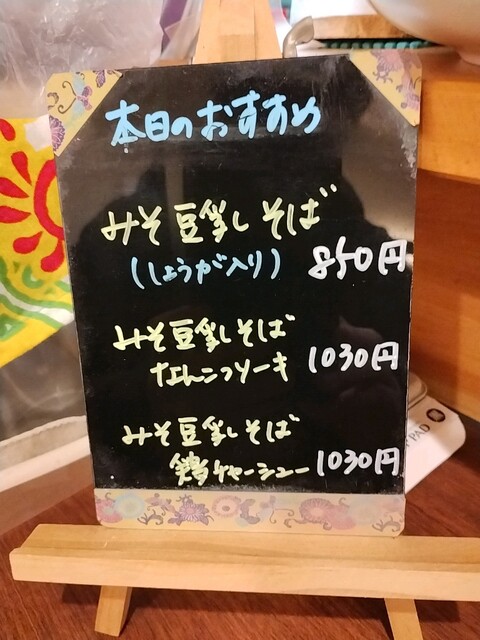 本日のおすすめ
みそ豆乳しそば
(しょうが入り) 850円
みそ豆乳しそば
なんこつソーキ 1030円
みそ豆乳しそば
鶏チャーシュー 1030円
PAD